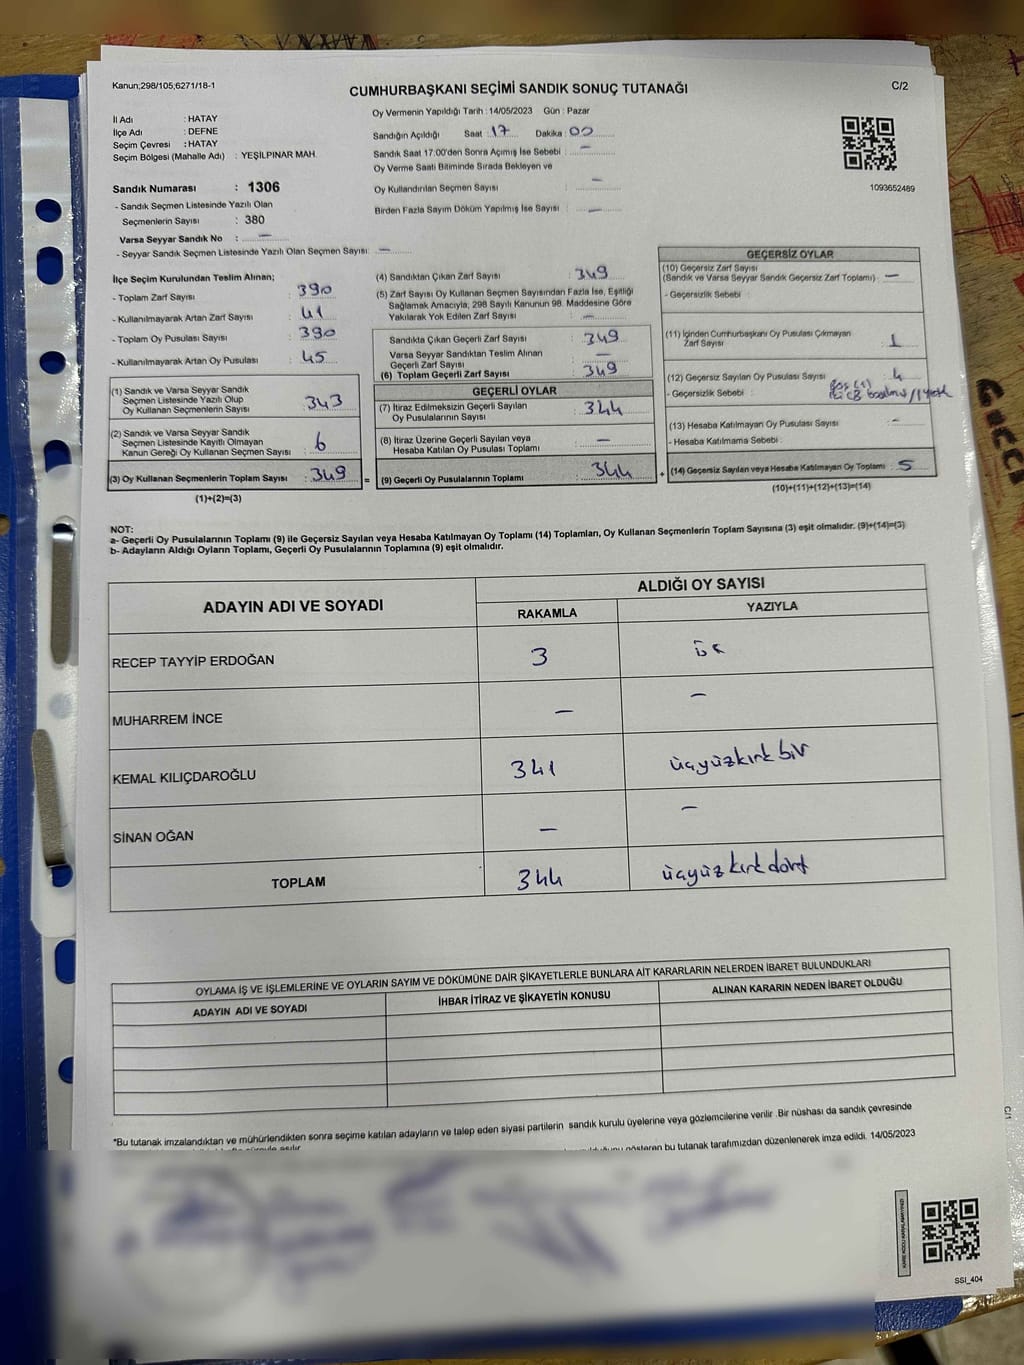 Kanun;298/105;6271/18-1
CUMHURBAŞKANI SEÇİMİ SANDIK SONUÇ TUTANAĞI
C/2
İl Adı : HATAY
İlçe Adı : DEFNE
Seçim Çevresi : HATAY
Seçim Bölgesi (Mahalle Adı) : YEŞİLPINAR MAH.
Sandık Numarası : 1306
- Sandık Seçmen Listesinde Yazılı Olan
Seçmenlerin Sayısı : 380
Varsa Seyyar Sandık No : —
- Seyyar Sandık Seçmen Listesinde Yazılı Olan Seçmen Sayısı: —
Oy Vermenin Yapıldığı Tarih : 14/05/2023 Gün : Pazar
Sandığın Açıldığı Saat : 17 Dakika : 00
Sandık Saat 17:00'den Sonra Açımış İse Sebebi : —
Oy Verme Saati Bitiminde Sırada Bekleyen ve
Oy Kullandırılan Seçmen Sayısı : —
Birden Fazla Sayım Döküm Yapılmış İse Sayısı : —
1093652489
İlçe Seçim Kurulundan Teslim Alınan;
- Toplam Zarf Sayısı : 390
- Kullanılmayarak Artan Zarf Sayısı : 41
- Toplam Oy Pusulası Sayısı : 390
- Kullanılmayarak Artan Oy Pusulası : 45
(1) Sandık ve Varsa Seyyar Sandık
Seçmen Listesinde Yazılı Olup
Oy Kullanan Seçmenlerin Sayısı : 343
(2) Sandık ve Varsa Seyyar Sandık
Seçmen Listesinde Kayıtlı Olmayan
Kanun Gereği Oy Kullanan Seçmen Sayısı : 6
(3) Oy Kullanan Seçmenlerin Toplam Sayısı : 349
(1)+(2)=(3)
=
(4) Sandıktan Çıkan Zarf Sayısı : 349
(5) Zarf Sayısı Oy Kullanan Seçmen Sayısından Fazla İse, Eşitliği
Sağlamak Amacıyla, 298 Sayılı Kanunun 98. Maddesine Göre
Yakılarak Yok Edilen Zarf Sayısı : —
Sandıkta Çıkan Geçerli Zarf Sayısı : 349
Varsa Seyyar Sandıktan Teslim Alınan
Geçerli Zarf Sayısı : —
(6) Toplam Geçerli Zarf Sayısı : 349
GEÇERLİ OYLAR
(7) İtiraz Edilmeksizin Geçerli Sayılan
Oy Pusulalarının Sayısı : 344
(8) İtiraz Üzerine Geçerli Sayılan veya
Hesaba Katılan Oy Pusulası Toplamı : —
(9) Geçerli Oy Pusulalarının Toplamı : 344
+
GEÇERSİZ OYLAR
(10) Geçersiz Zarf Sayısı
(Sandık ve Varsa Seyyar Sandık Geçersiz Zarf Toplamı) : —
- Geçersizlik Sebebi :
(11) İçinden Cumhurbaşkanı Oy Pusulası Çıkmayan
Zarf Sayısı : 1
(12) Geçersiz Sayılan Oy Pusulası Sayısı : 4
- Geçersizlik Sebebi :
(13) Hesaba Katılmayan Oy Pusulası Sayısı : -
- Hesaba Katılmama Sebebi :
(14) Geçersiz Sayılan veya Hesaba Katılmayan Oy Toplamı : 5
(10)+(11)+(12)+(13)=(14)
NOT:
a- Geçerli Oy Pusulalarının Toplamı (9) ile Geçersiz Sayılan veya Hesaba Katılmayan Oy Toplamı (14) Toplamları, Oy Kullanan Seçmenlerin Toplam Sayısına (3) eşit olmalıdır. (9)+(14)=(3)
b- Adayların Aldığı Oyların Toplamı, Geçerli Oy Pusulalarının Toplamına (9) eşit olmalıdır.
ADAYIN ADI VE SOYADI ALDIĞI OY SAYISI
RAKAMLA YAZIYLA
RECEP TAYYİP ERDOĞAN 3 üç
MUHARREM İNCE — —
KEMAL KILIÇDAROĞLU 341 üçyüzkırk bir
SİNAN OĞAN — —
TOPLAM 344 üçyüz kırk dört
OYLAMA İŞ VE İŞLEMLERİNE VE OYLARIN SAYIM VE DÖKÜMÜNE DAİR ŞİKAYETLERLE BUNLARA AİT KARARLARIN NELERDEN İBARET BULUNDUKLARI
ADAYIN ADI VE SOYADI İHBAR İTİRAZ VE ŞİKAYETİN KONUSU ALINAN KARARIN NEDEN İBARET OLDUĞU
*Bu tutanak imzalandıktan ve mühürlendikten sonra seçime katılan adayların ve talep eden siyasi partilerin sandık kurulu üyelerine veya gözlemcilerine verilir .Bir nüshası da sandık çevresinde
gösteren bu tutanak tarafımızdan düzenlenerek imza edildi. 14/05/2023
C/1
SSI_404
GUCCI